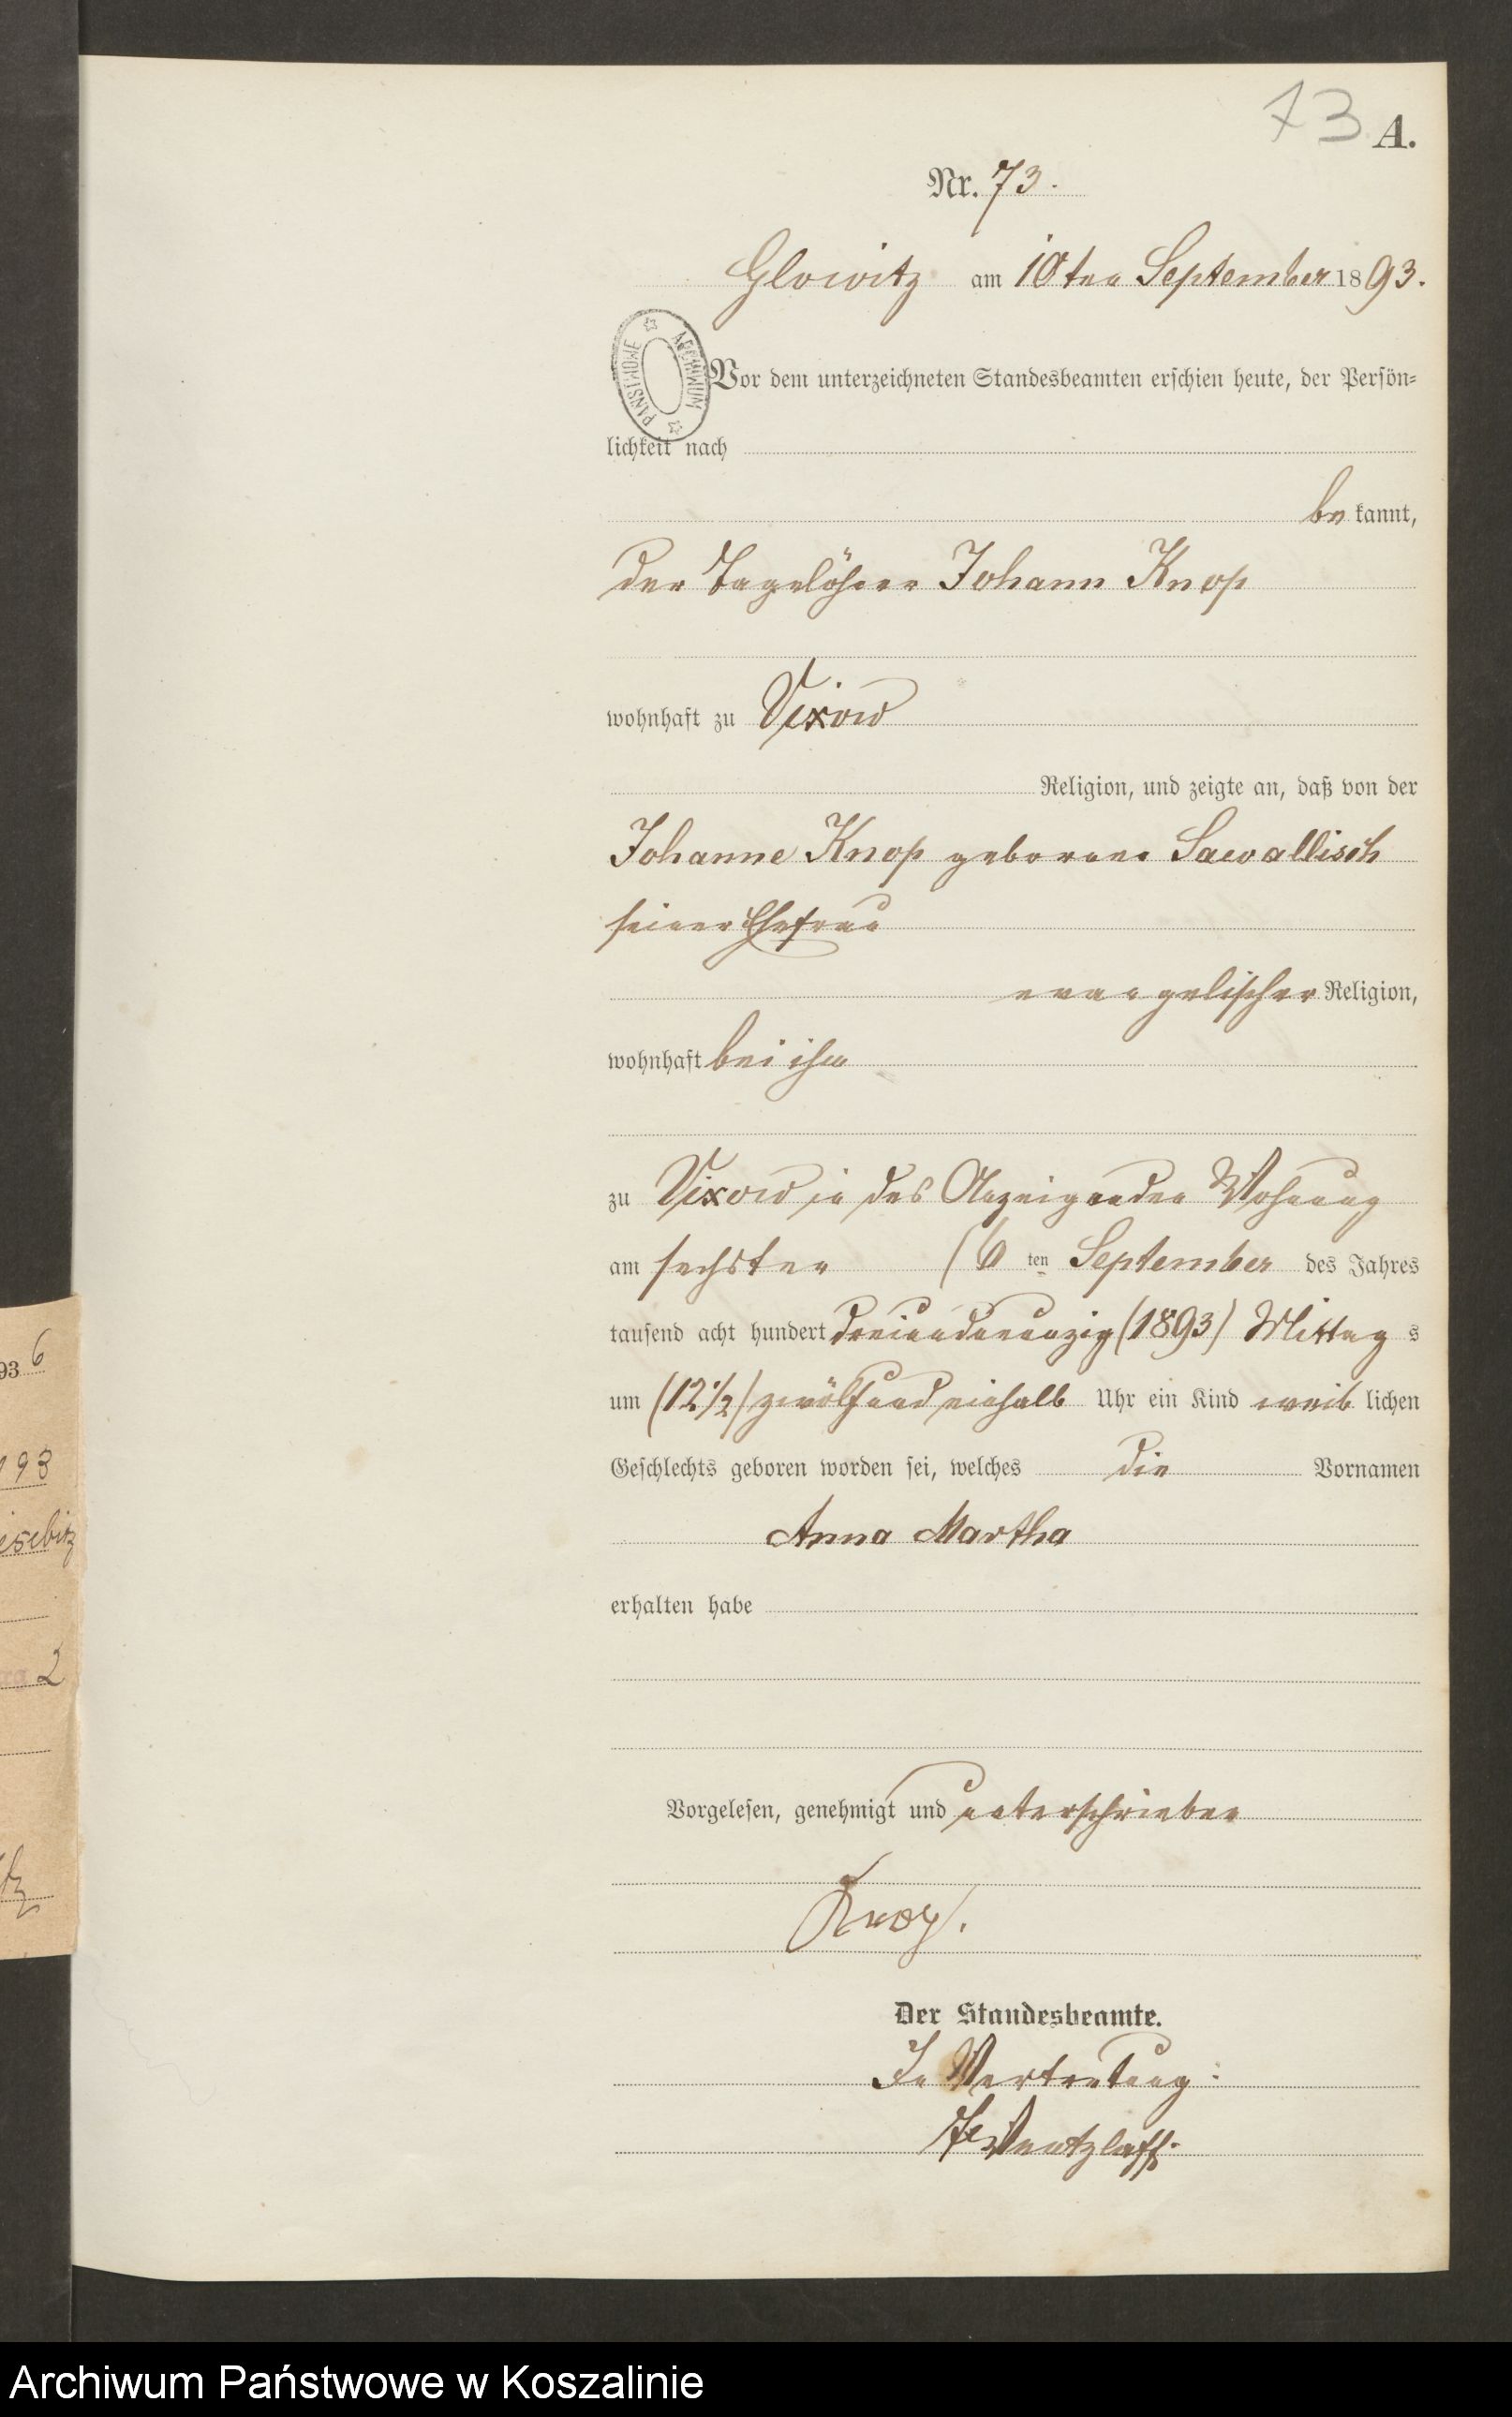 73 A.
Nr. 73.
Glowitz am 10ten September 1893.
Vor dem unterzeichneten Standesbeamten erschien heute, der Persön-
lichkeit nach
be kannt,
der Tagelöhner Johann Knop
wohnhaft zu Vixow
Religion, und zeigte an, daß von der
Johanne Knop geborene Sawallisch
seiner Ehefrau
evangelischer Religion,
wohnhaft bei ihm
zu Vixow in des Anzeigenden Wohnung
am sechsten (6 ten September des Jahres
tausend acht hundert dreiundneunzig (1893) Mittag s
um (12 1/2) zwölfundeinhalb Uhr ein Kind weib lichen
Geschlechts geboren worden sei, welches die Vornamen
Anna Martha
erhalten habe
Vorgelesen, genehmigt und unterschrieben
Knop.
Der Standesbeamte.
In Vertretung:
Wentzlaff.
ARCHIWUM PAŃSTWOWE
93 6
193
2
Archiwum Państwowe w Koszalinie